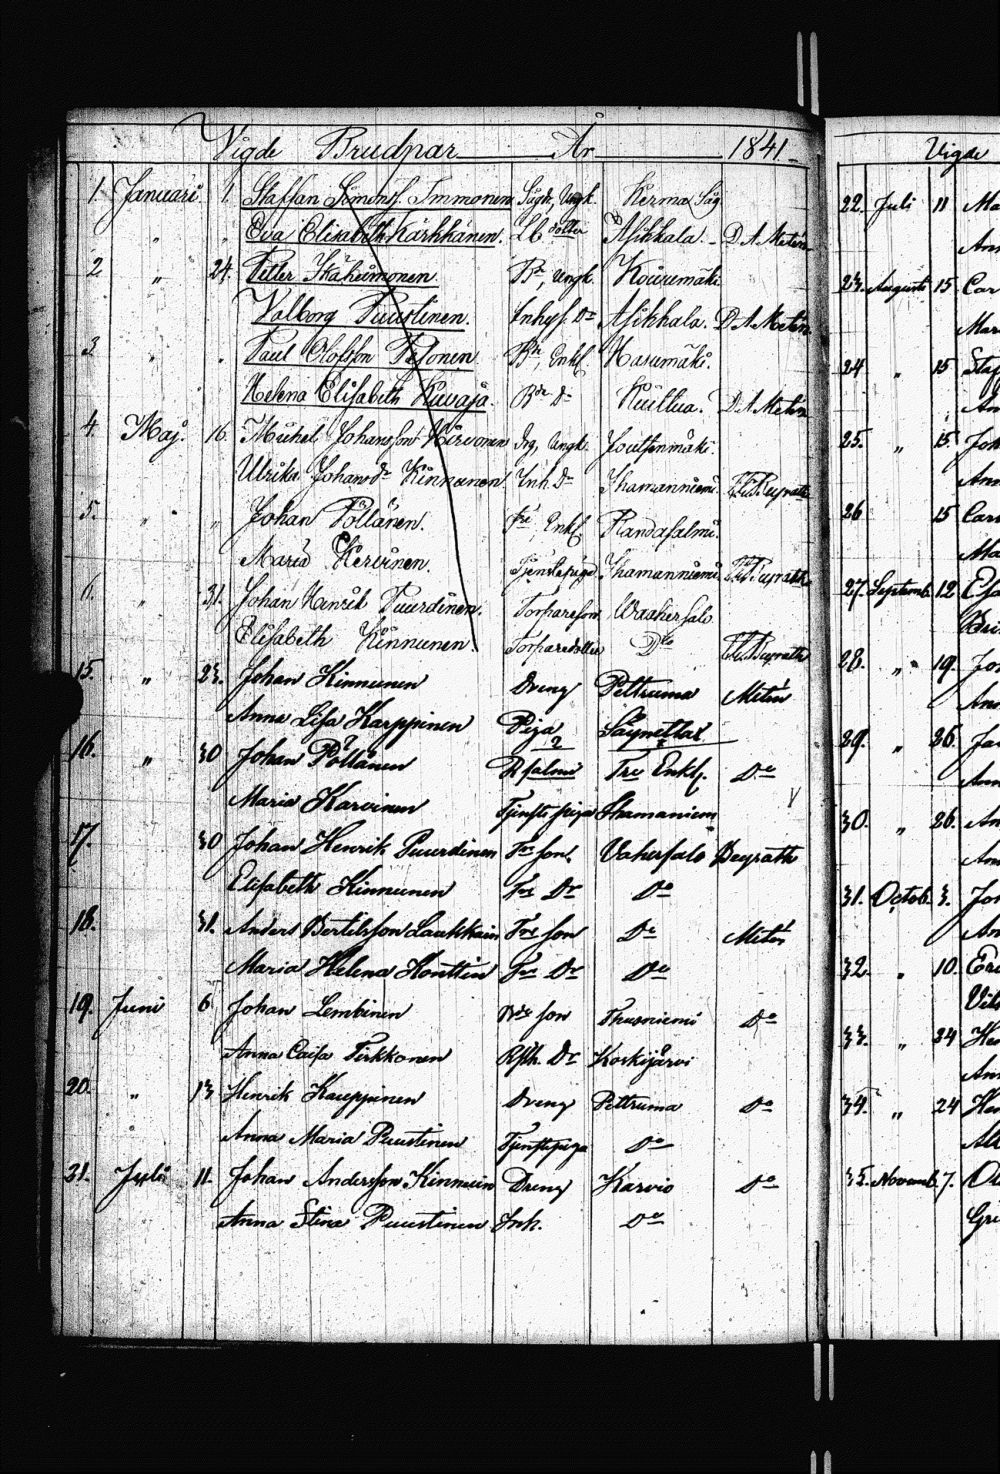 Vigde Brudpar År 1841
1. Januari 1. Staffan Simonsſ. Immonen Sågk, Ungk. Kerma Såg
" " Eva Elisabeth Kärkkänen. Lb dotter Asikkala. D A Metén
2 " 24. Petter Ikäheimonen. Br, Ungk. Kouvumäki
Valborg Puustinen. Inhys. Dr Asikkala. D A Metén
3 " " Paul Olofsson Pesonen Br, Enkl. Hasumäki.
Helena Elisabeth Kuvaja. Bde Dr D A Metén
4. Maj. 16. Michel Johansson Hirvonen Drg, Ungk. Joutsenmäki.
Ulrika Johansdr Kinnunen Inh. Dr Ihamanniemi.
5. " " Johan Pöllänen. Enkl Randasalmi.
Maria Kervinen. Tjenstepiga Ihamanniemi
6. " 31. Johan Henrik Puurdinen. Torpareson Vaahersalo
Elisabeth Kinnunen. Torparedotter Do
15. " 23. Johan Kinnunen Dreng Pettruma Metén
Anna Lisa Karppinen Piga Säynettax
16. " 30 Johan Pöllänen Rsalmi Enkl. Do
Maria Karvinen Tjenste piga Ihamaniem
17. 30 Johan Henrik Puurdinen Tre son Vahersalo Beyrath
Elisabeth Kinnunen Tre Dr Do
18. 31. Anders Bertilsson Laukkain Tre son Do Metén
Maria Helena Konttin Tre Dr Do
19. Juni 6 Johan Lembinen Bde son Do
Anna Caisa Pirkkonen Dr Koskijärvi
20. " 13 Henrik Kauppinen Dreng Pettruma Do
Anna Maria Puustinen Tjenstepiga Do
21. Juli 11. Johan Andersson Kinnuin Dreng Karvio Do
Anna Stina Puustinen Inh. Do
Vigde
22. Juli 11 Ma
Ann
23. Augusti 15. Car
Mar
24 " 15 Staf
An
25. " 15. Joh
Ann
26 15 Car
Ma
27. Septemb. 12
Bri
28. " 19. Jo
Ann
29. " 26. Ja
Ann
30. " 26. An
Ann
31. Octob. 3. Jo
An
32. " 10. Eri
33. " 24 Hen
Ann
34. " 24 Hen
35. Novemb. 7.
Gri